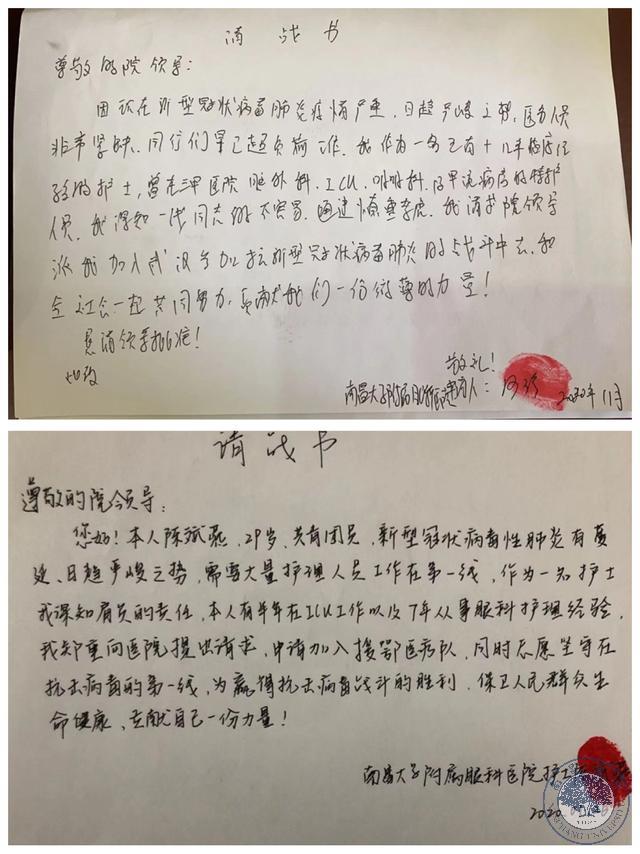 请战书
尊敬的院领导:
因现在新型冠状病毒肺炎疫情严重,日趋严峻之势,医务人员
非常紧缺、同行们早已超负荷工作、我作为一名已有十几年临床经
验的护士,曾在三甲医院脑外科、ICU、呼吸科、及甲流病房的特护
人员、我深知一线同志的不容易,我请求院领导
派我加入武汉参加抗击新型冠状病毒肺炎的战斗中去,和
全社会一起共同努力,贡献我们一份微薄的力量!
恳请领导批准!
敬礼!
南昌大学附属眼科医院
请战书
尊敬的院领导:
您好!本人陈斌燕、29岁、共青团员,新型冠状病毒性肺炎有蔓
延、日趋严峻之势,需要大量护理人员工作在第一线,作为一名护士
我深知肩负的责任,本人有半年在ICU工作以及7年从事眼科护理经验,
我郑重向医院提出请求,申请加入援鄂医疗队,同时志愿坚守在
抗击病毒的第一线,为赢得抗击病毒战斗的胜利,保卫人民群众生
命健康、贡献自己一份力量!
南昌大学附属眼科医院护士
2020